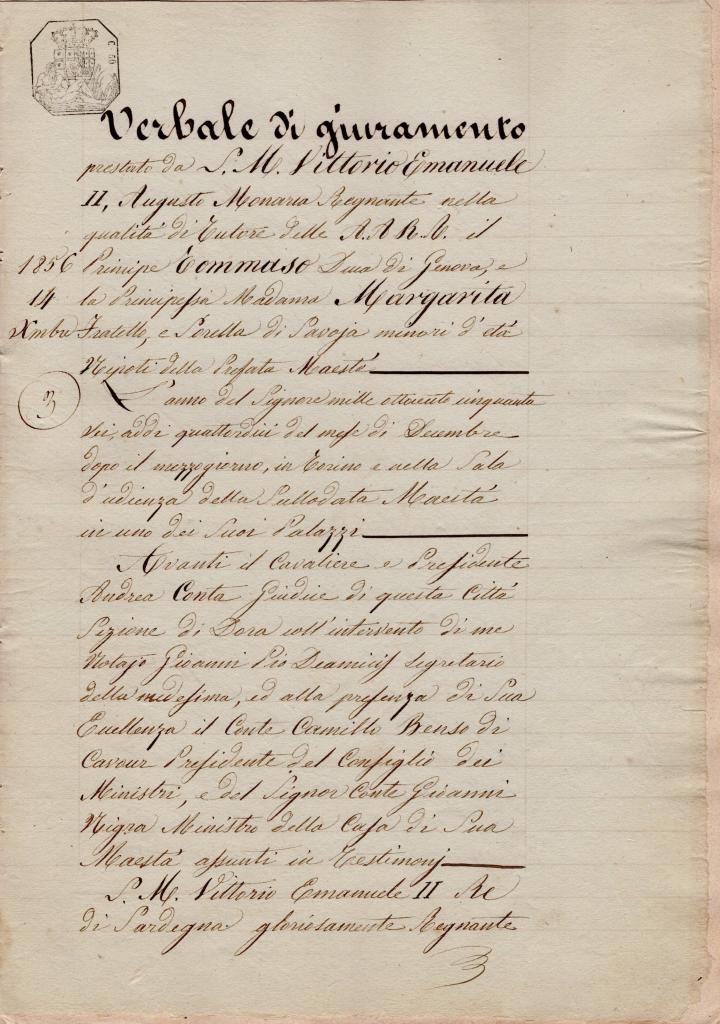 C. 60
Verbale di giuramento
prestato da S. M. Vittorio Emanuele
II, Augusto Monarca Regnante nella
qualità di Tutore delle A.A. R.R. il
1856 Principe Tommaso Duca di Genova, e
14 la Principessa Madama Margarita
Xmbre Fratello, e Sorella di Savoja minori d'età
Nipoti della Prefata Maestà
3
L'anno del Signore mille ottocento cinquanta
sei, addì quattordici del mese di Decembre
dopo il mezzogiorno, in Torino e nella Sala
d'udienza della Sullodata Maestà
in uno dei Suoi Palazzi
Avanti il Cavaliere e Presidente
Andrea Conta Giudice di questa Città
Sezione di Dora coll'intervento di me
Notajo Gioanni Pio Deamicis segretario
della medesima, ed alla presenza di Sua
Eccellenza il Conte Camillo Benso di
Cavour Presidente del Consiglio dei
Ministri, e del Signor Conte Gioanni
Nigra Ministro della Casa di Sua
Maestà assunti in Testimonj
S. M. Vittorio Emanuele II Re
di Sardegna gloriosamente Regnante